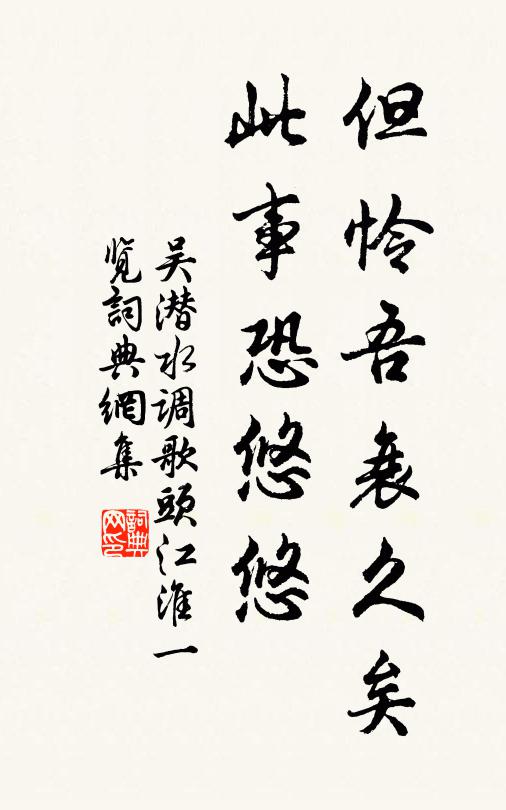 但怜吾衰久矣
此事恐悠悠
吴潜水调歌头江淮一
览词典網集
詞典
网印